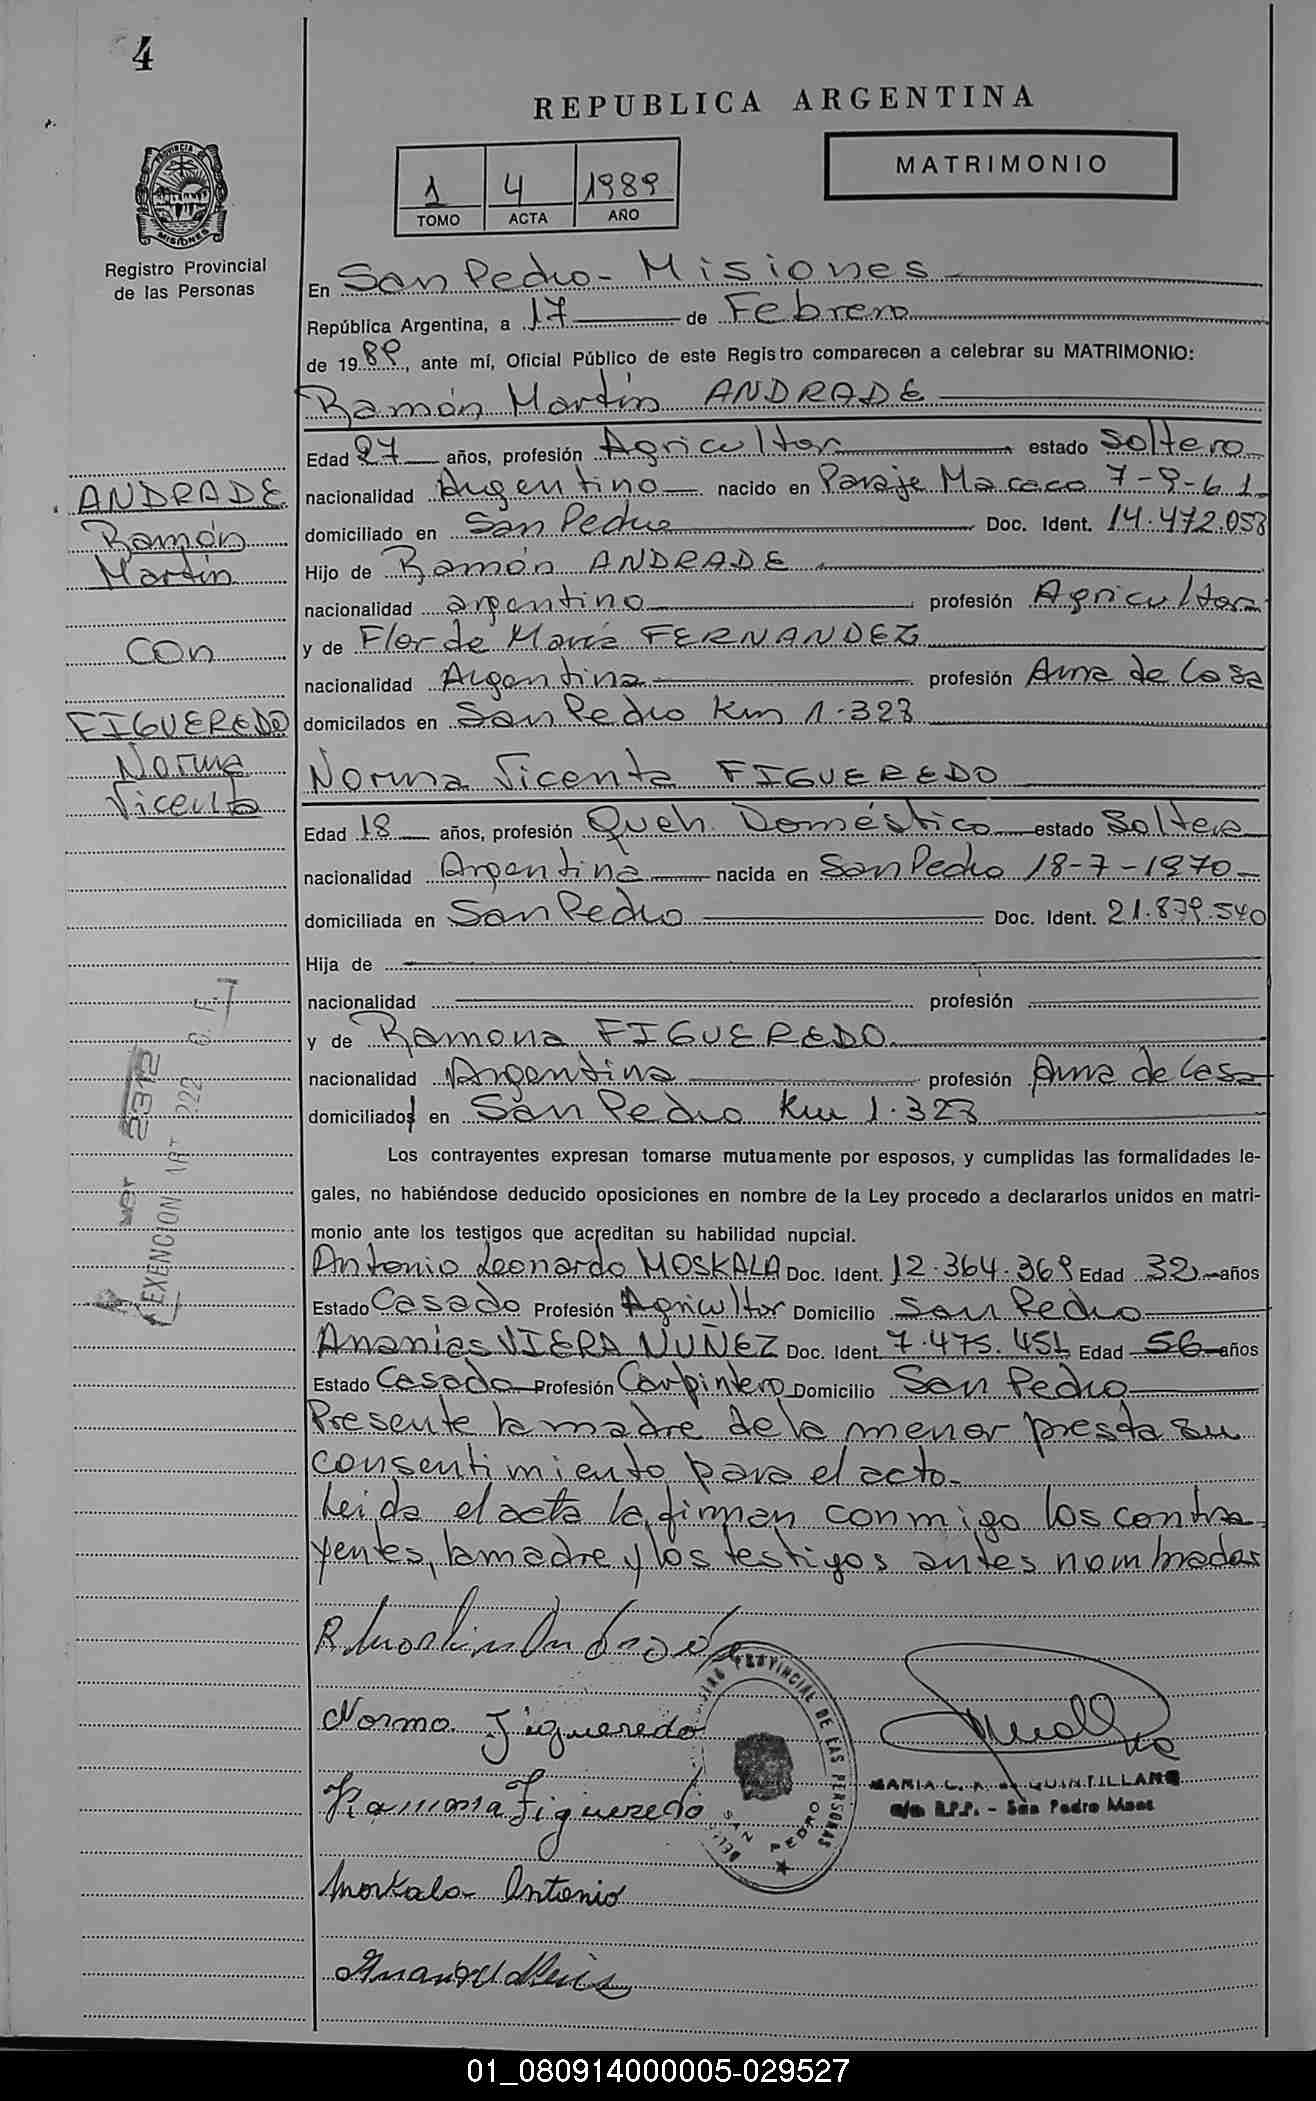 4
REPUBLICA ARGENTINA
MATRIMONIO
1 4 1989
TOMO ACTA AÑO
PROVINCIA DE
MISIONES
Registro Provincial
de las Personas
En San Pedro - Misiones
República Argentina, a 17 de Febrero
de 1989, ante mí, Oficial Público de este Registro comparecen a celebrar su MATRIMONIO:
Ramón Martín ANDRADE
Edad 27 años, profesión Agricultor estado Soltero
nacionalidad Argentino nacido en Paraje Macaco 7-9-61
domiciliado en San Pedro Doc. Ident. 14.472.058
Hijo de Ramón ANDRADE
nacionalidad argentino profesión Agricultor
y de Flor de María FERNANDEZ
nacionalidad Argentina profesión Ama de Casa
domicilados en San Pedro Km 1.323
ANDRADE
Ramón
Martín
con
FIGUEREDO
Norma
Vicenta
Norma Vicenta FIGUEREDO
Edad 18 años, profesión Queh. Doméstico estado Soltera
nacionalidad Argentina nacida en San Pedro 18-7-1970
domiciliada en San Pedro Doc. Ident. 21.879.540
Hija de
nacionalidad profesión
y de Ramona FIGUEREDO
nacionalidad Argentina profesión Ama de Casa
domiciliados en San Pedro Km 1.323
EXENCION ART 222
Los contrayentes expresan tomarse mutuamente por esposos, y cumplidas las formalidades le-
gales, no habiéndose deducido oposiciones en nombre de la Ley procedo a declararlos unidos en matri-
monio ante los testigos que acreditan su habilidad nupcial.
Antonio Leonardo MOSKALA Doc. Ident. 12.364.369 Edad 32 años
Estado Casado Profesión Agricultor Domicilio San Pedro
Ananias VIERA NUÑEZ Doc. Ident. 7.475.451 Edad 56 años
Estado Casado Profesión Carpintero Domicilio San Pedro
Presente la madre de la menor presta su
consentimiento para el acto.
Leida el acta la firman conmigo los contra
yentes, la madre y los testigos antes nombrados
R. Martin Andrade
Norma Figueredo
Ramona Figueredo
Moskala Antonio
PROVINCIAL DE LAS PERSONAS
SAN PEDRO
MARIA C. A. de QUINTILLAN
R.P.P. - San Pedro Mnes
01_080914000005-029527